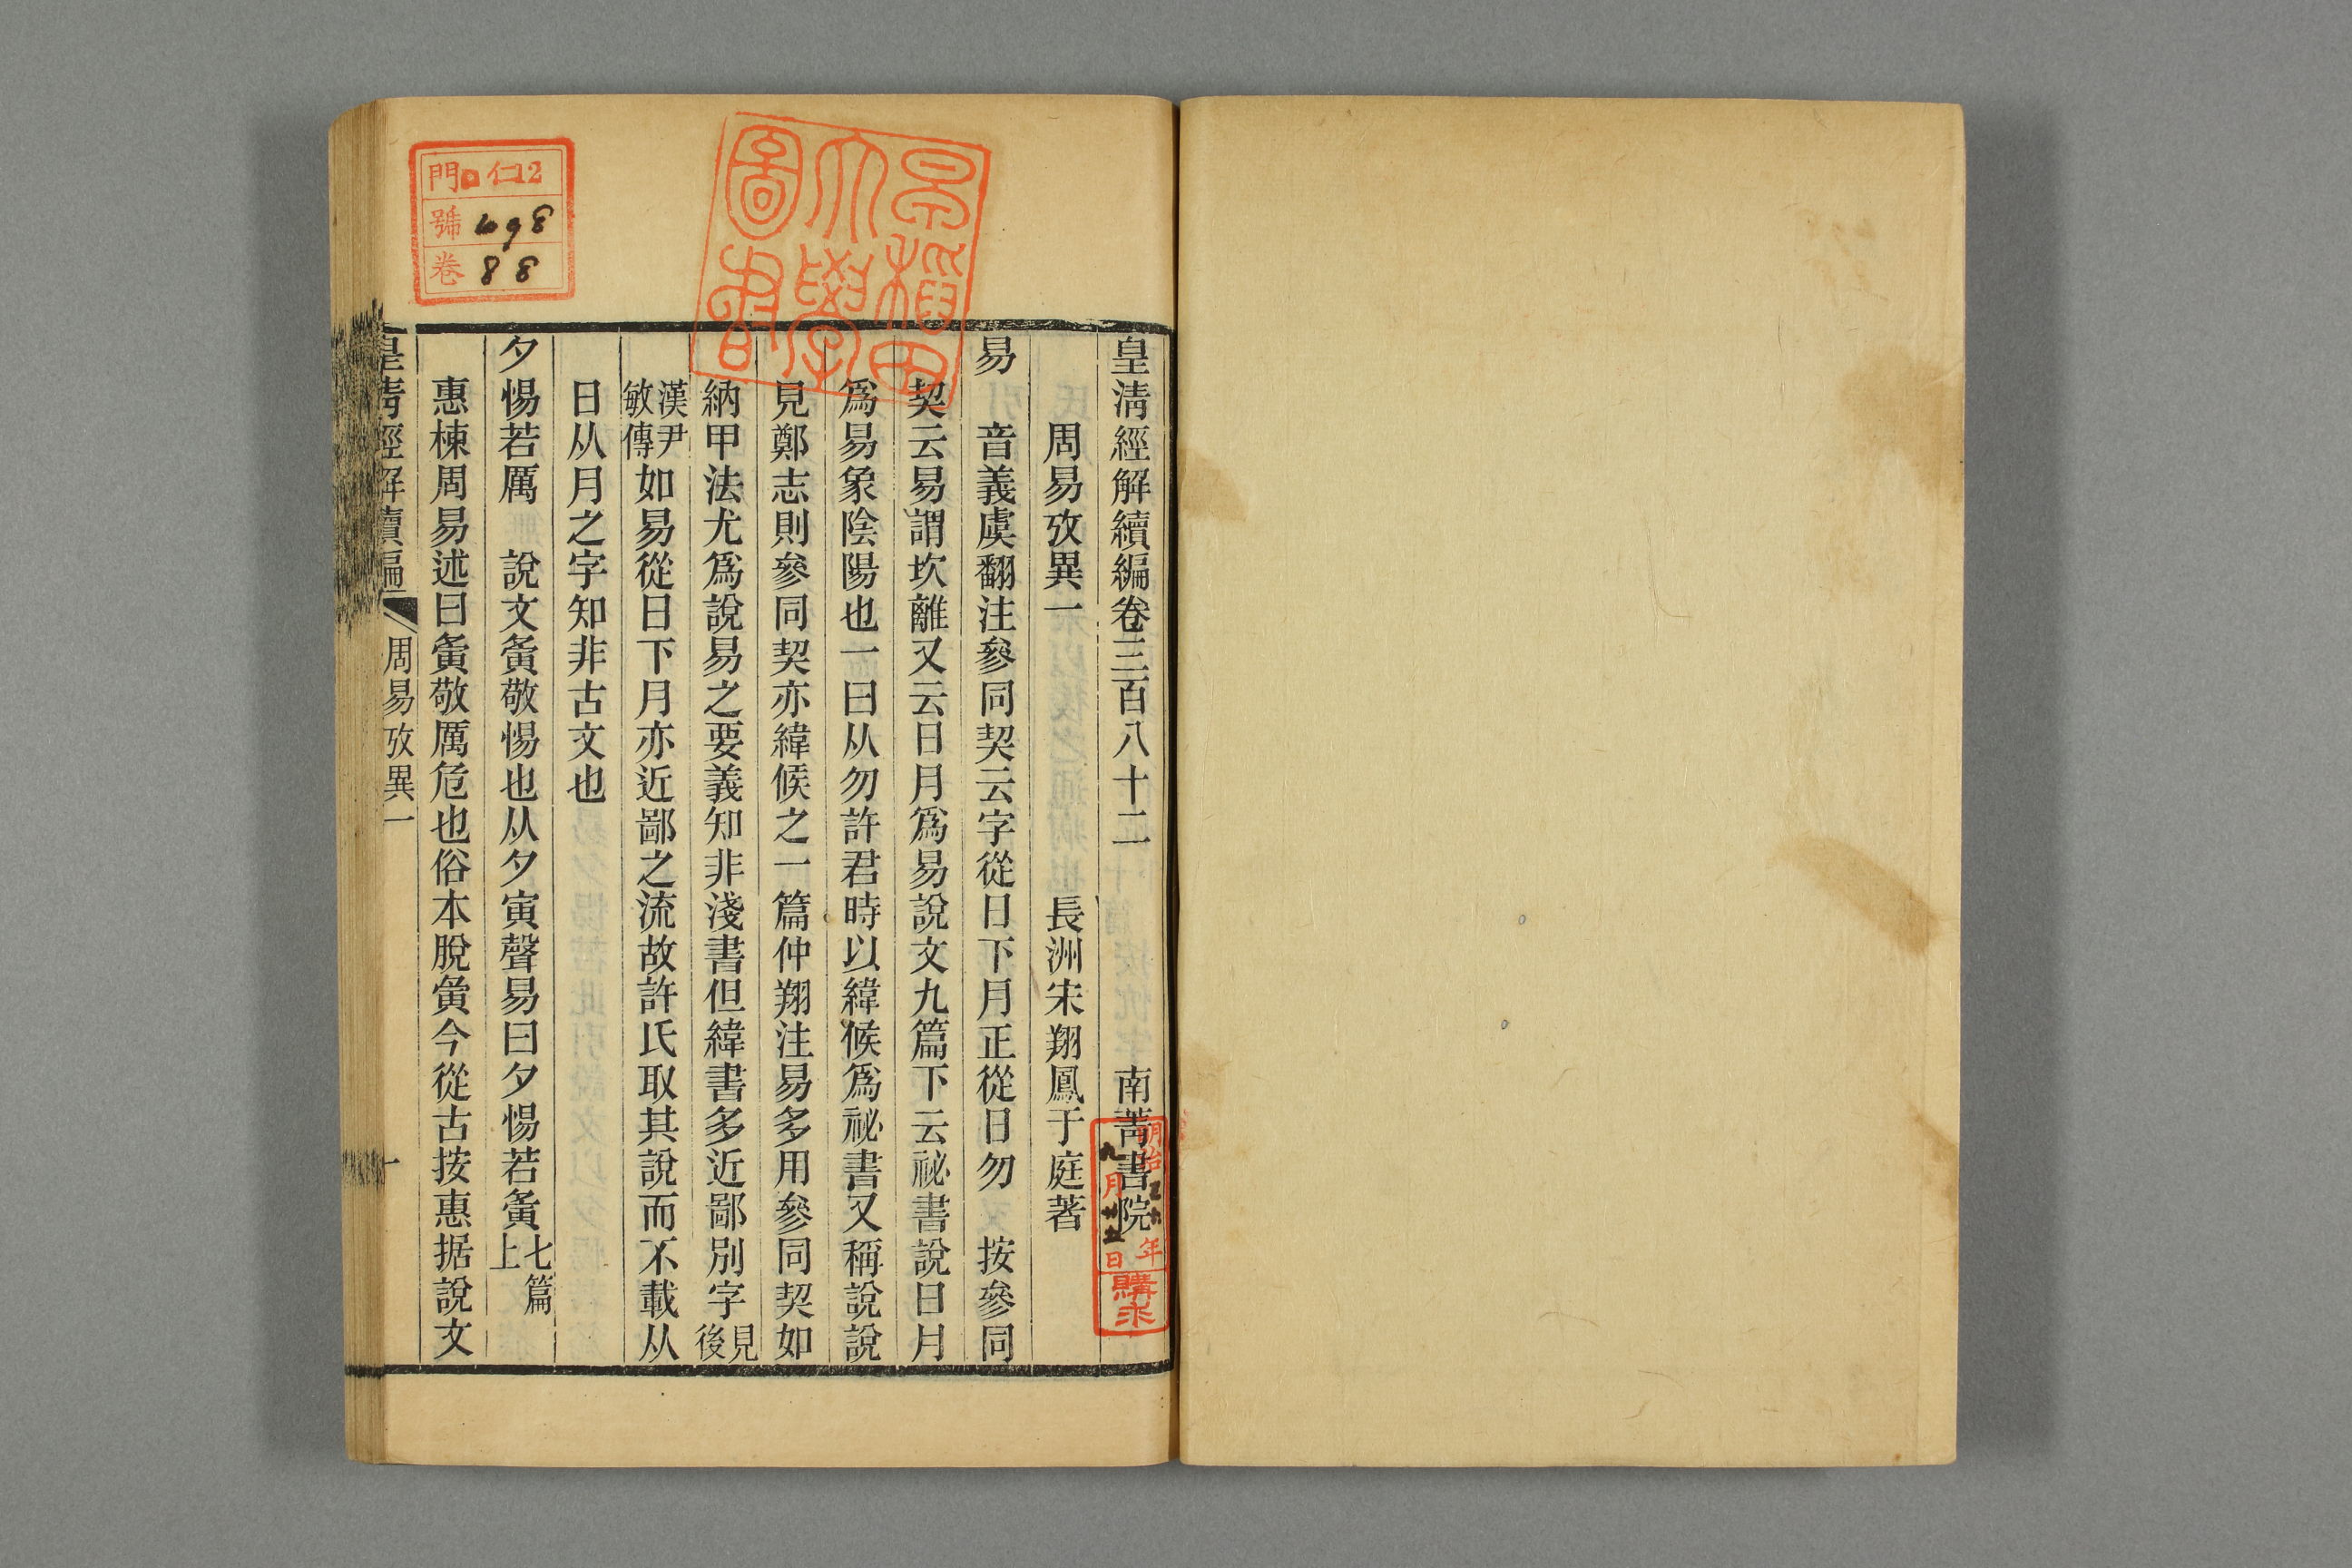 皇淸經解續編卷三百八十二 南菁書院
周易攷異一 長洲宋翔鳳于庭著
易 音義虞翻注參同契云字從日下月正從日勿 按參同
契云易謂坎離又云日月爲易說文九篇下云祕書說日月
爲易象陰陽也一曰从勿許君時以緯候爲祕書又稱說說
見鄭志則參同契亦緯候之一篇仲翔注易多用參同契如
納甲法尤爲說易之要義知非淺書但緯書多近鄙別字見後
漢尹敏傳如易從日下月亦近鄙之流故許氏取其說而不載从
日从月之字知非古文也
夕惕若厲 說文夤敬惕也从夕寅聲易曰夕惕若夤七篇上
惠棟周易述曰夤敬厲危也俗本脫夤今從古按惠据說文
皇淸經解續編 周易攷異一 一
早稻田大學圖書
門 仁12
號 498
卷 88
明治 年九月廿五日購求